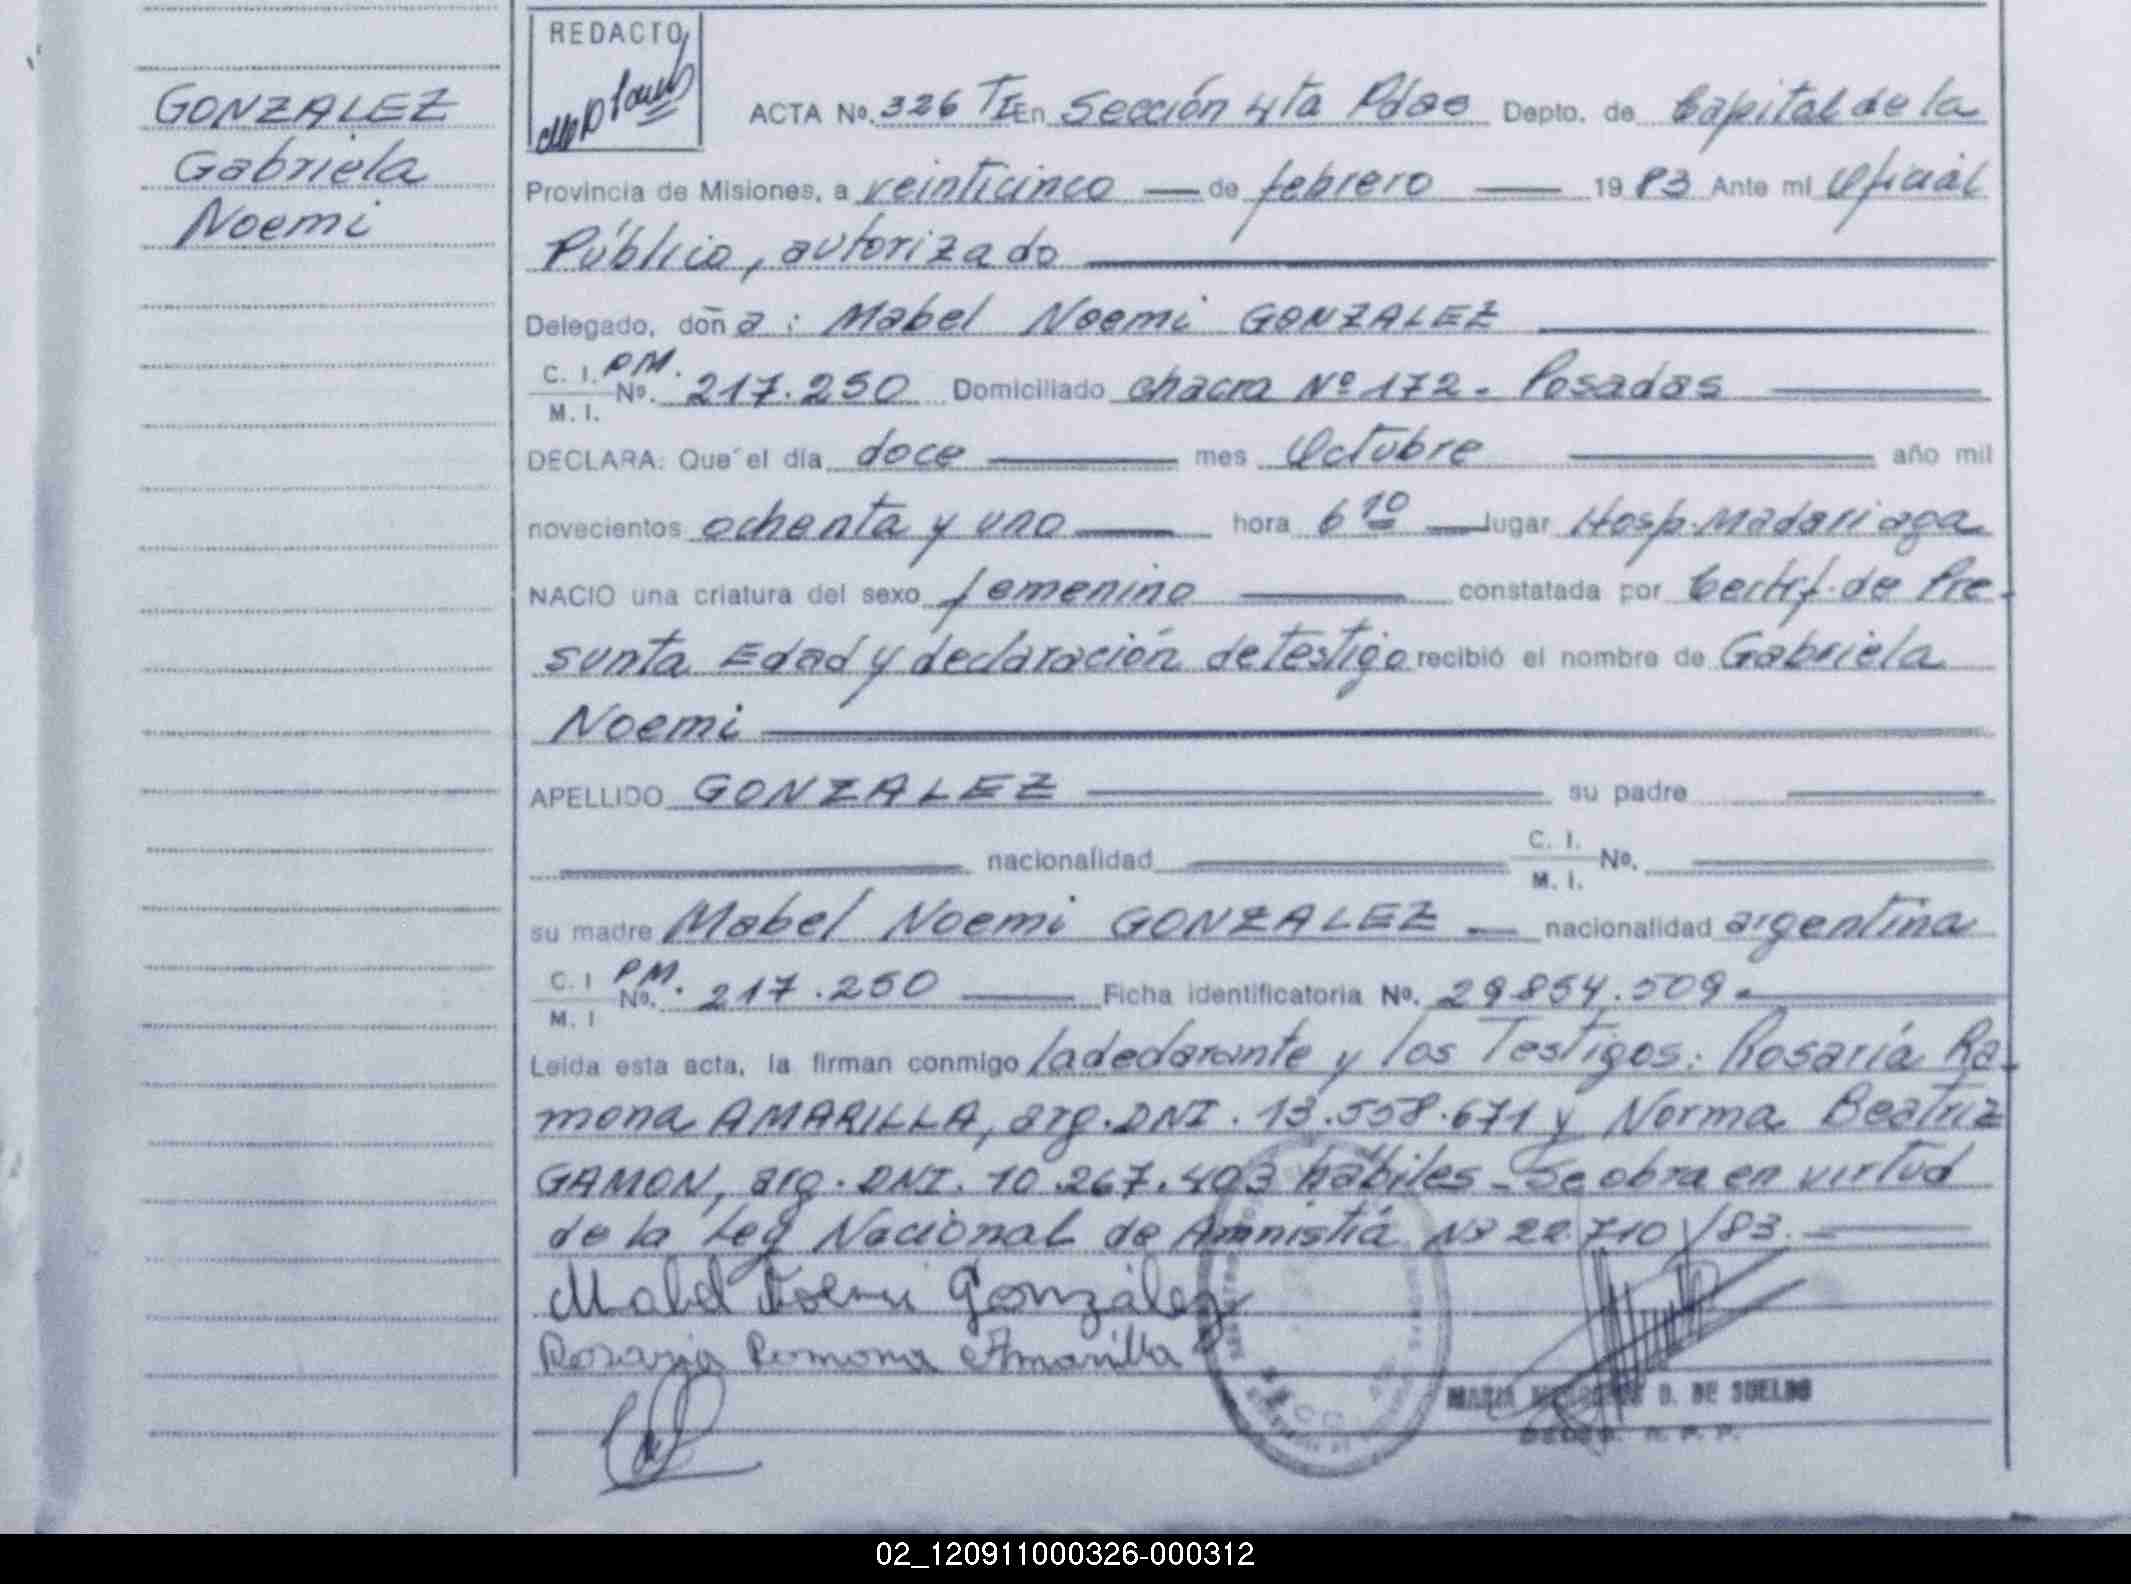 GONZALEZ
Gabriela
Noemi
REDACTO
ACTA No. 326 TI En Sección 4ta Pdas Depto. de Capital de la
Provincia de Misiones, a veinticinco de febrero 1983 Ante mi Oficial
Público, autorizado
Delegado, doña: Mabel Noemi GONZALEZ
C. I. PM.
M. I. No. 217.250 Domiciliado chacra Nº 172 - Posadas
DECLARA: Que el día doce mes Octubre año mil
novecientos ochenta y uno hora 6 10 lugar Hosp. Madariaga
NACIO una criatura del sexo femenino constatada por Certif. de Pre-
sunta Edad y declaración de testigo recibió el nombre de Gabriela
Noemi
APELLIDO GONZALEZ su padre
nacionalidad C. I. M. I. No.
su madre Mabel Noemi GONZALEZ nacionalidad argentina
C. I PM.
M. I No. 217.250 Ficha identificatoria No. 29854.509.
Leida esta acta, la firman conmigo la declarante y los Testigos: Rosaria Ra-
mona AMARILLA, arg. DNI. 13.558.671 y Norma Beatriz
GAMON, arg. DNI. 10.267.403 hábiles - Se obra en virtud
de la Ley Nacional de Amnistiá Nº 22710/83.
Mabel Noemi González
Rosaria Ramona Amarilla
D. DE SUELDO
02_120911000326-000312